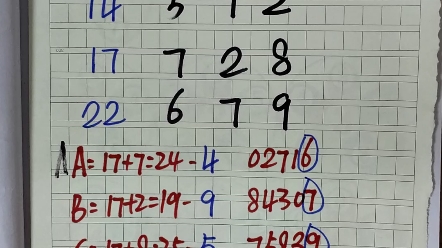 14 5 1 2
17 7 2 8
22 6 7 9
A=17+7=24-4 02716
B=17+2=19-9 84307
C=17+8=25-5 75839